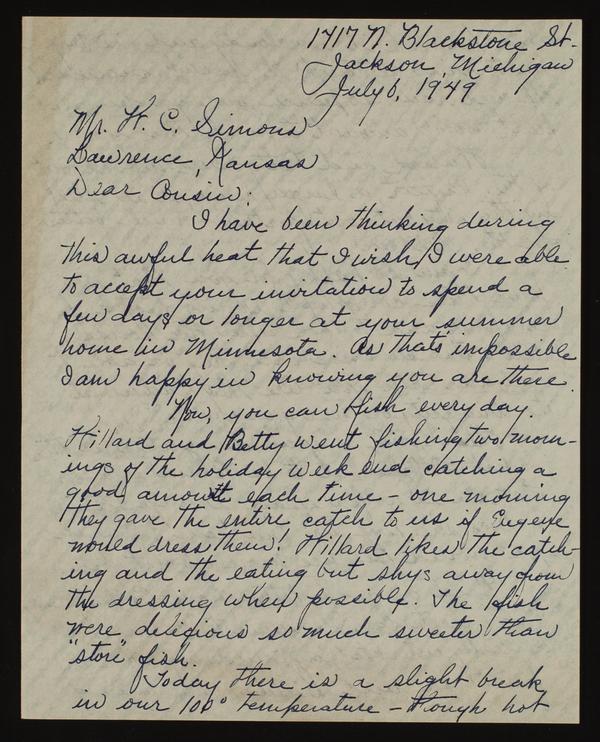 1717 N. Blackstone St.
Jackson, Michigan
July 6, 1949
Mr. H. C. Simons
Lawrence, Kansas
Dear Cousin:
I have been thinking during
this awful heat that I wish I were able
to accept your invitation to spend a
few days or longer at your summer
home in Minnesota. As that's impossible
I am happy in knowing you are there.
Now, you can fish every day.
Hillard and Betty went fishing two morn-
ings of the holiday week end catching a
good amount each time - one morning
they gave the entire catch to us if Eugene
would dress them! Hillard likes the catch-
ing and the eating but shys away from
the dressing when possible. The fish
were delicious so much sweeter than
"store" fish.
Today there is a slight break
in our 100° temperature - though hot